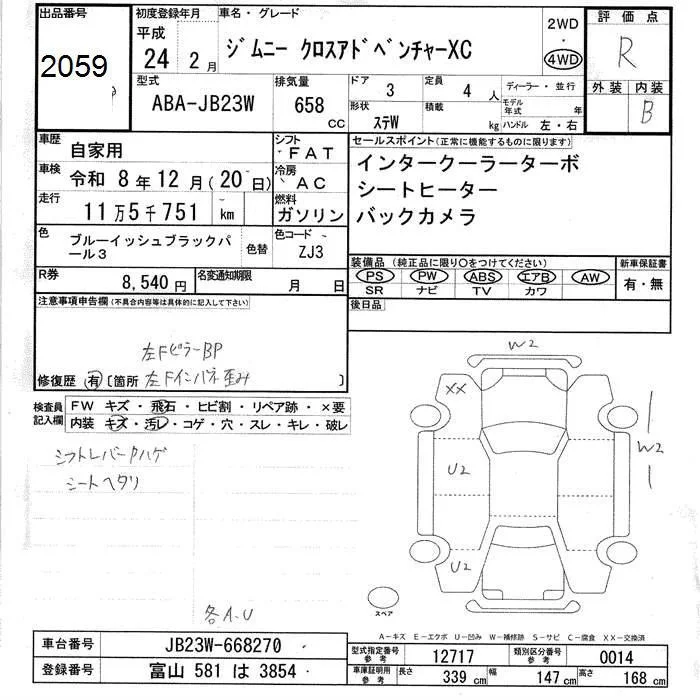 出品番号
2059
初度登録年月
平成
24 2月
車名・グレード
ジムニー クロスアドベンチャーXC
2WD
・
4WD
評価点
R
外装 内装
B
型式
ABA-JB23W
排気量
658
CC
ドア 3
定員 4 人
形状 ステW
積載 kg
ディーラー・並行
モデル年式 年
ハンドル 左・右
車歴 自家用
シフト FAT
車検 令和 8年12月(20日)
冷房 AC
走行 11万5千751 km
燃料 ガソリン
色 ブルーイッシュブラックパール3
色替
色コード ZJ3
R券 8,540円
名変通知期限 月 日
セールスポイント(正常に機能するものに限ります)
インタークーラーターボ
シートヒーター
バックカメラ
装備品(純正品に限り○をつけてください)
PS PW ABS エアB AW
SR ナビ TV カワ
新車保証書
有・無
後日品
注意事項申告欄(不具合内容等は具体的に記入して下さい)
左FピラーBP
修復歴 有 〔箇所 左Fインパネ歪み 〕
検査員記入欄
FW キズ・飛石・ヒビ割・リペア跡・×要
内装 キズ・汚レ・コゲ・穴・スレ・キレ・破レ
シフトレバー ハゲ
シートヘタリ
各A.U
W2
XX
U2
W2
U2
スペア
A-キズ E-エクボ U-凹み W-補修跡 S-サビ C-腐食 XX-交換済
車台番号 JB23W-668270
登録番号 富山 581 は 3854
型式指定番号 参考 12717
類別区分番号 参考 0014
車庫証明用 参考 長さ 339 cm 幅 147 cm 高さ 168 cm